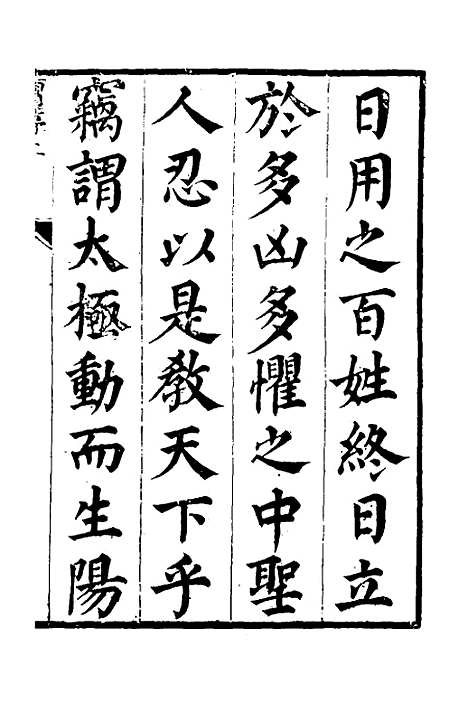 日用之百姓終日立
於多凶多懼之中聖
人忍以是教天下乎
竊謂太極動而生陽